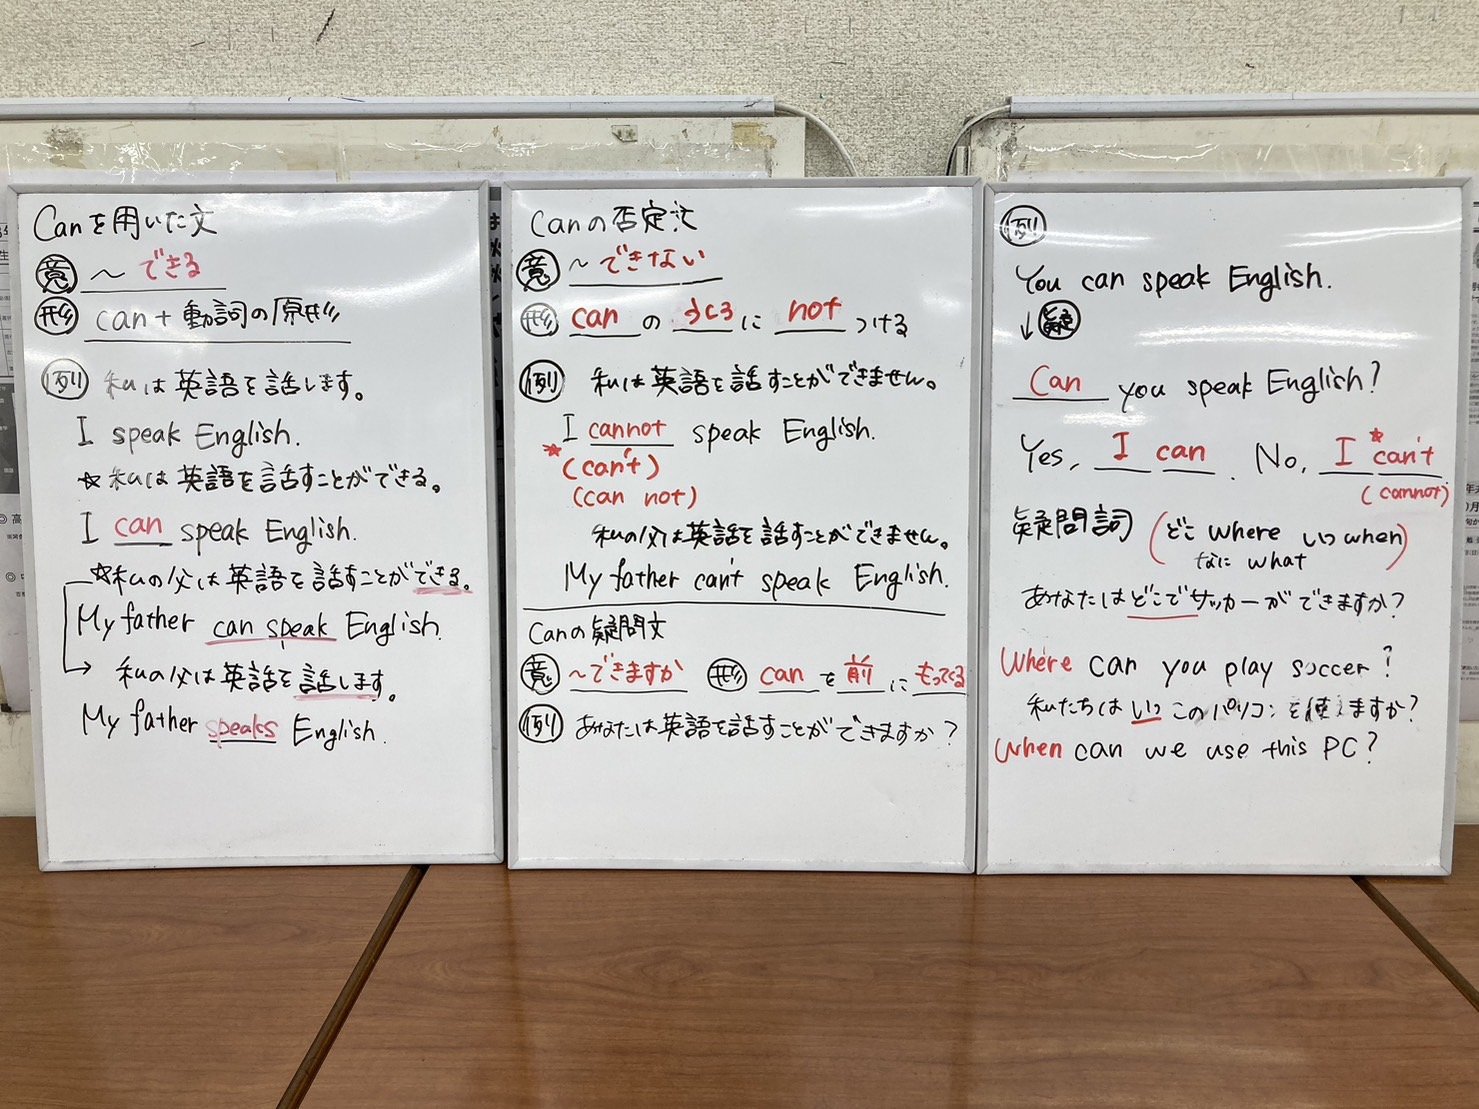 Canを用いた文
意 ～できる
形 can+動詞の原形
例 私は英語を話します。
I speak English.
☆私は英語を話すことができる。
I can speak English.
☆私の父は英語を話すことができる。
My father can speak English.
→ 私の父は英語を話します。
My father speaks English.
Canの否定文
意 ～できない
形 can の うしろ に not つける
例 私は英語を話すことができません。
I cannot speak English.
★(can't)
(can not)
私の父は英語を話すことができません。
My father can't speak English.
Canの疑問文
意 ～できますか 形 can を 前 に もってくる
例 あなたは英語を話すことができますか?
例
You can speak English.
↓疑
Can you speak English?
Yes, I can. No, I ★can't
(cannot)
疑問詞 (どこ where いつ when)
なに what
あなたはどこでサッカーができますか?
Where can you play soccer?
私たちはいつこのパソコンを使えますか?
When can we use this PC?